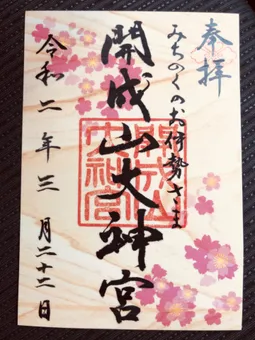 奉拝
みちのくのお伊勢さま
開成山大神宮
開成山大神宮
令和二年三月二十二日